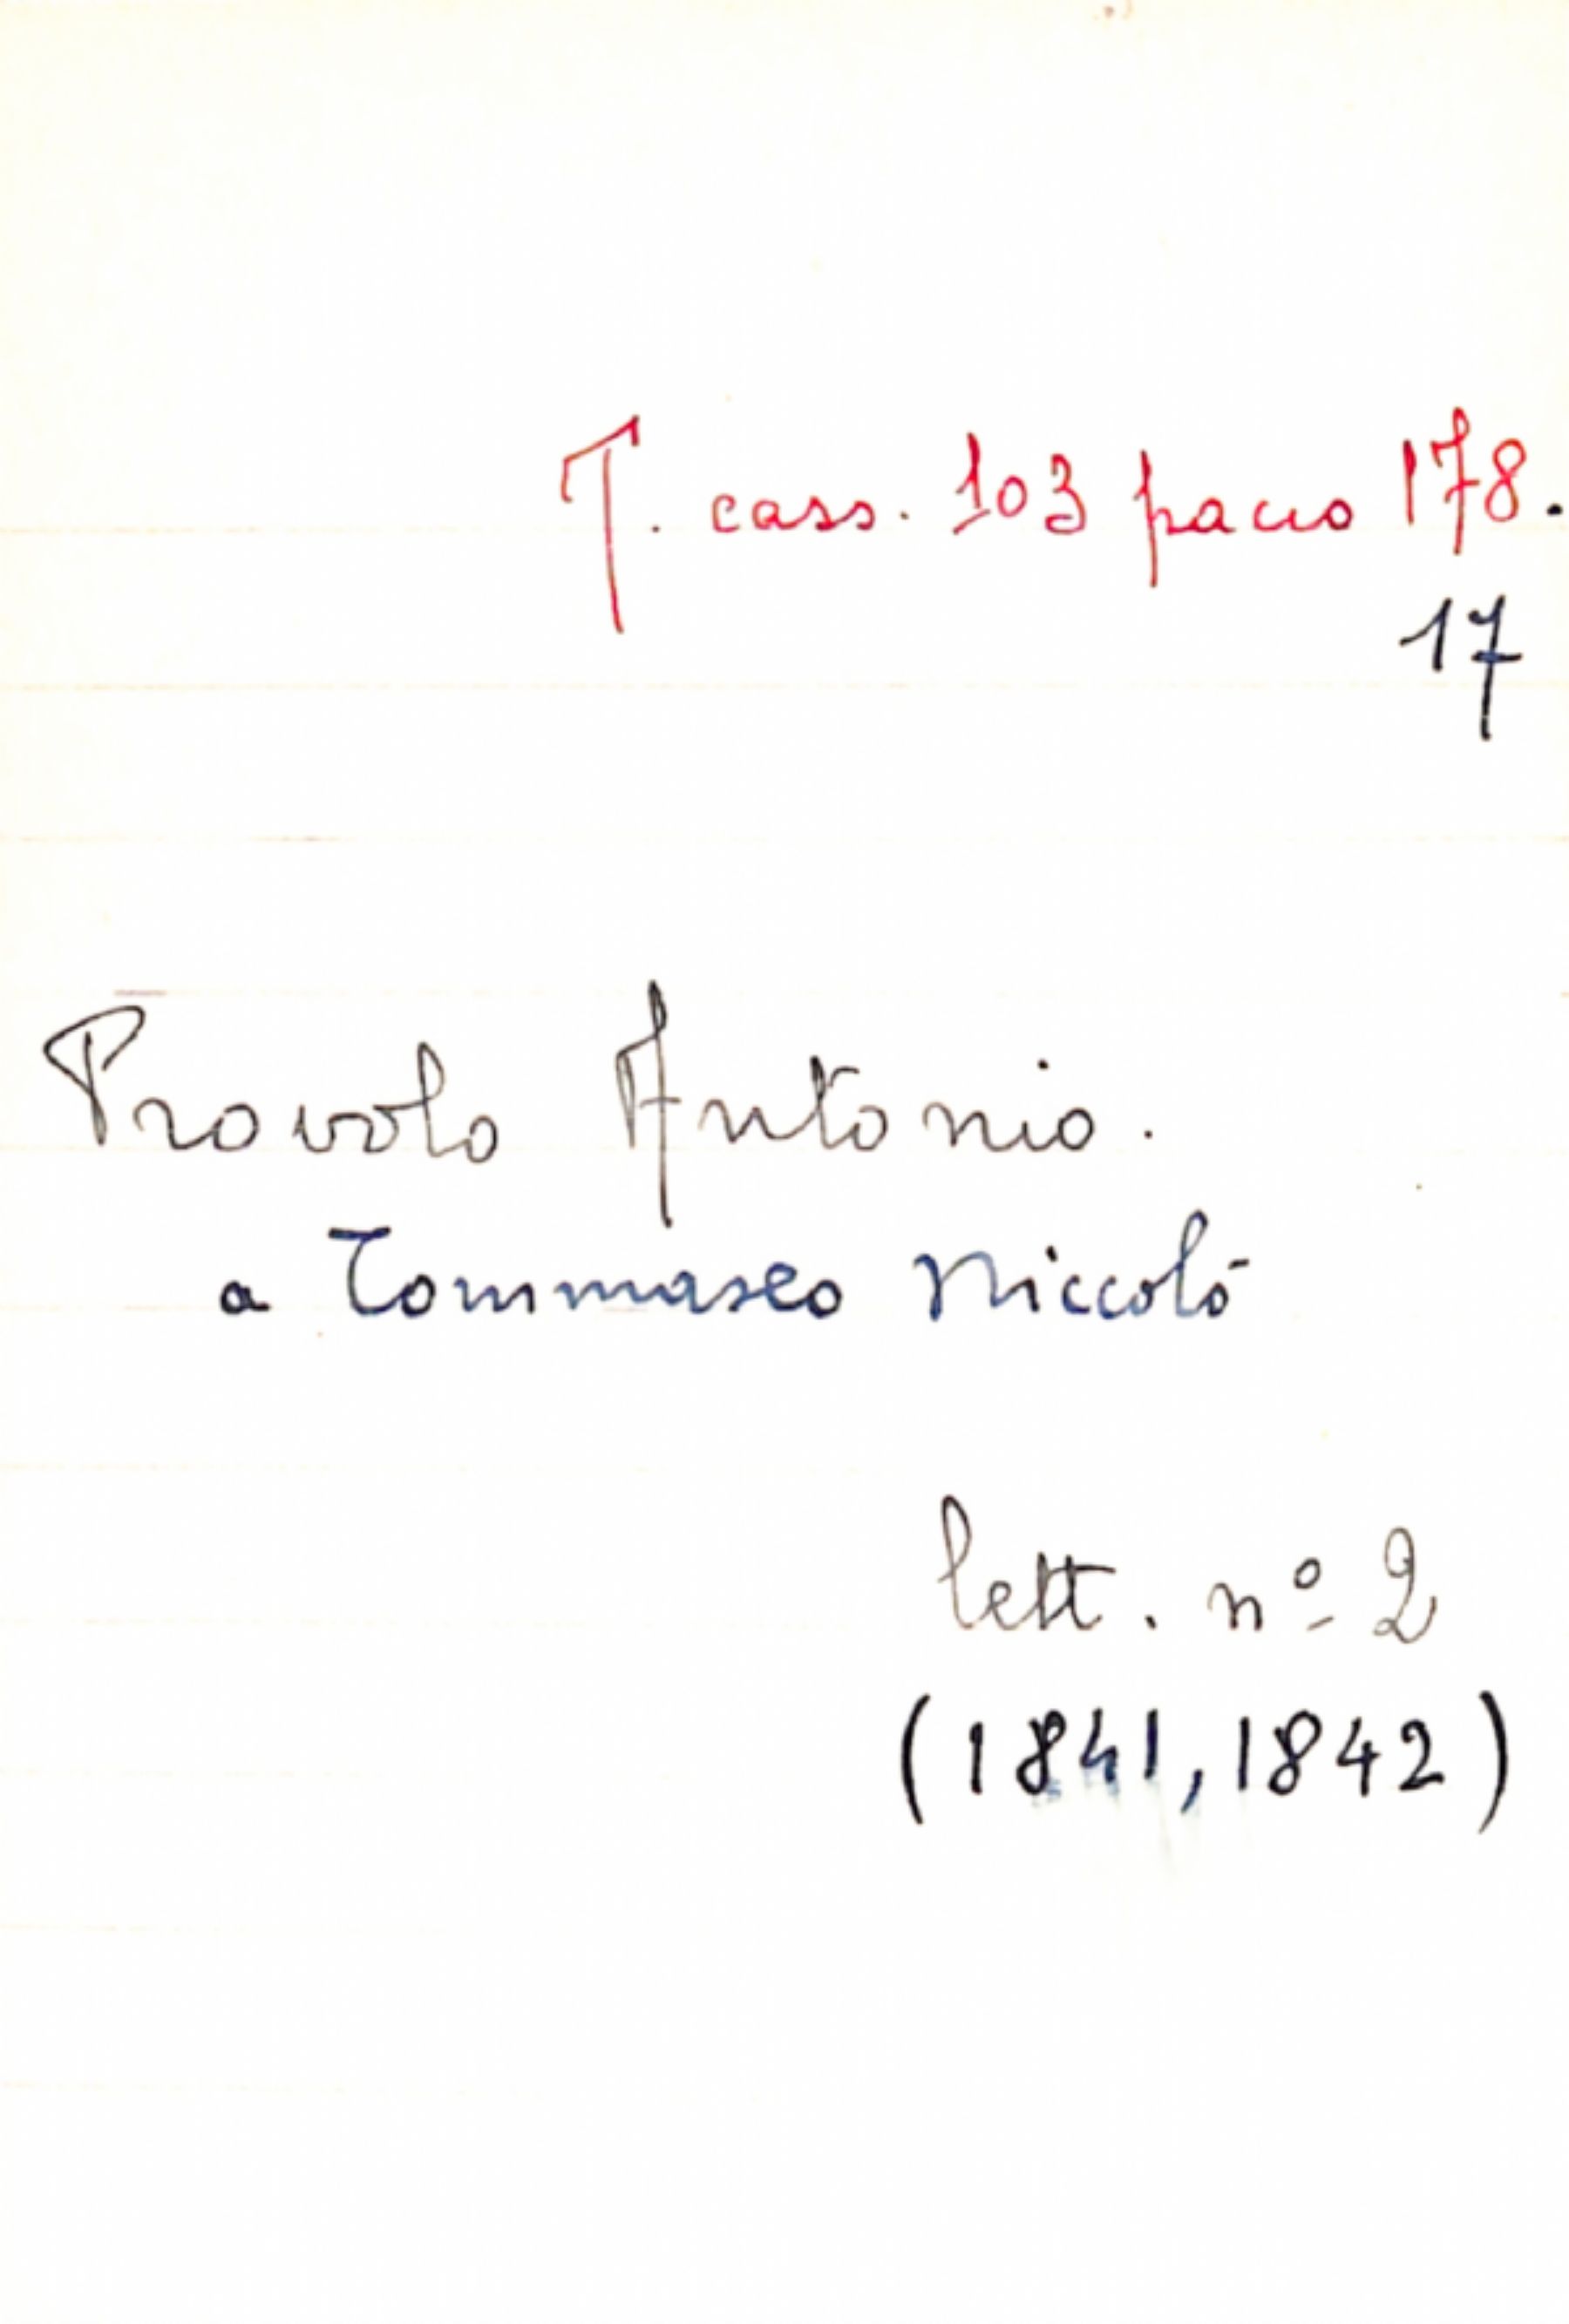 T. cass. 103 pacco 178.
17
Provolo Antonio.
a Tommaseo Niccolò
lett. nº 2
(1841, 1842)